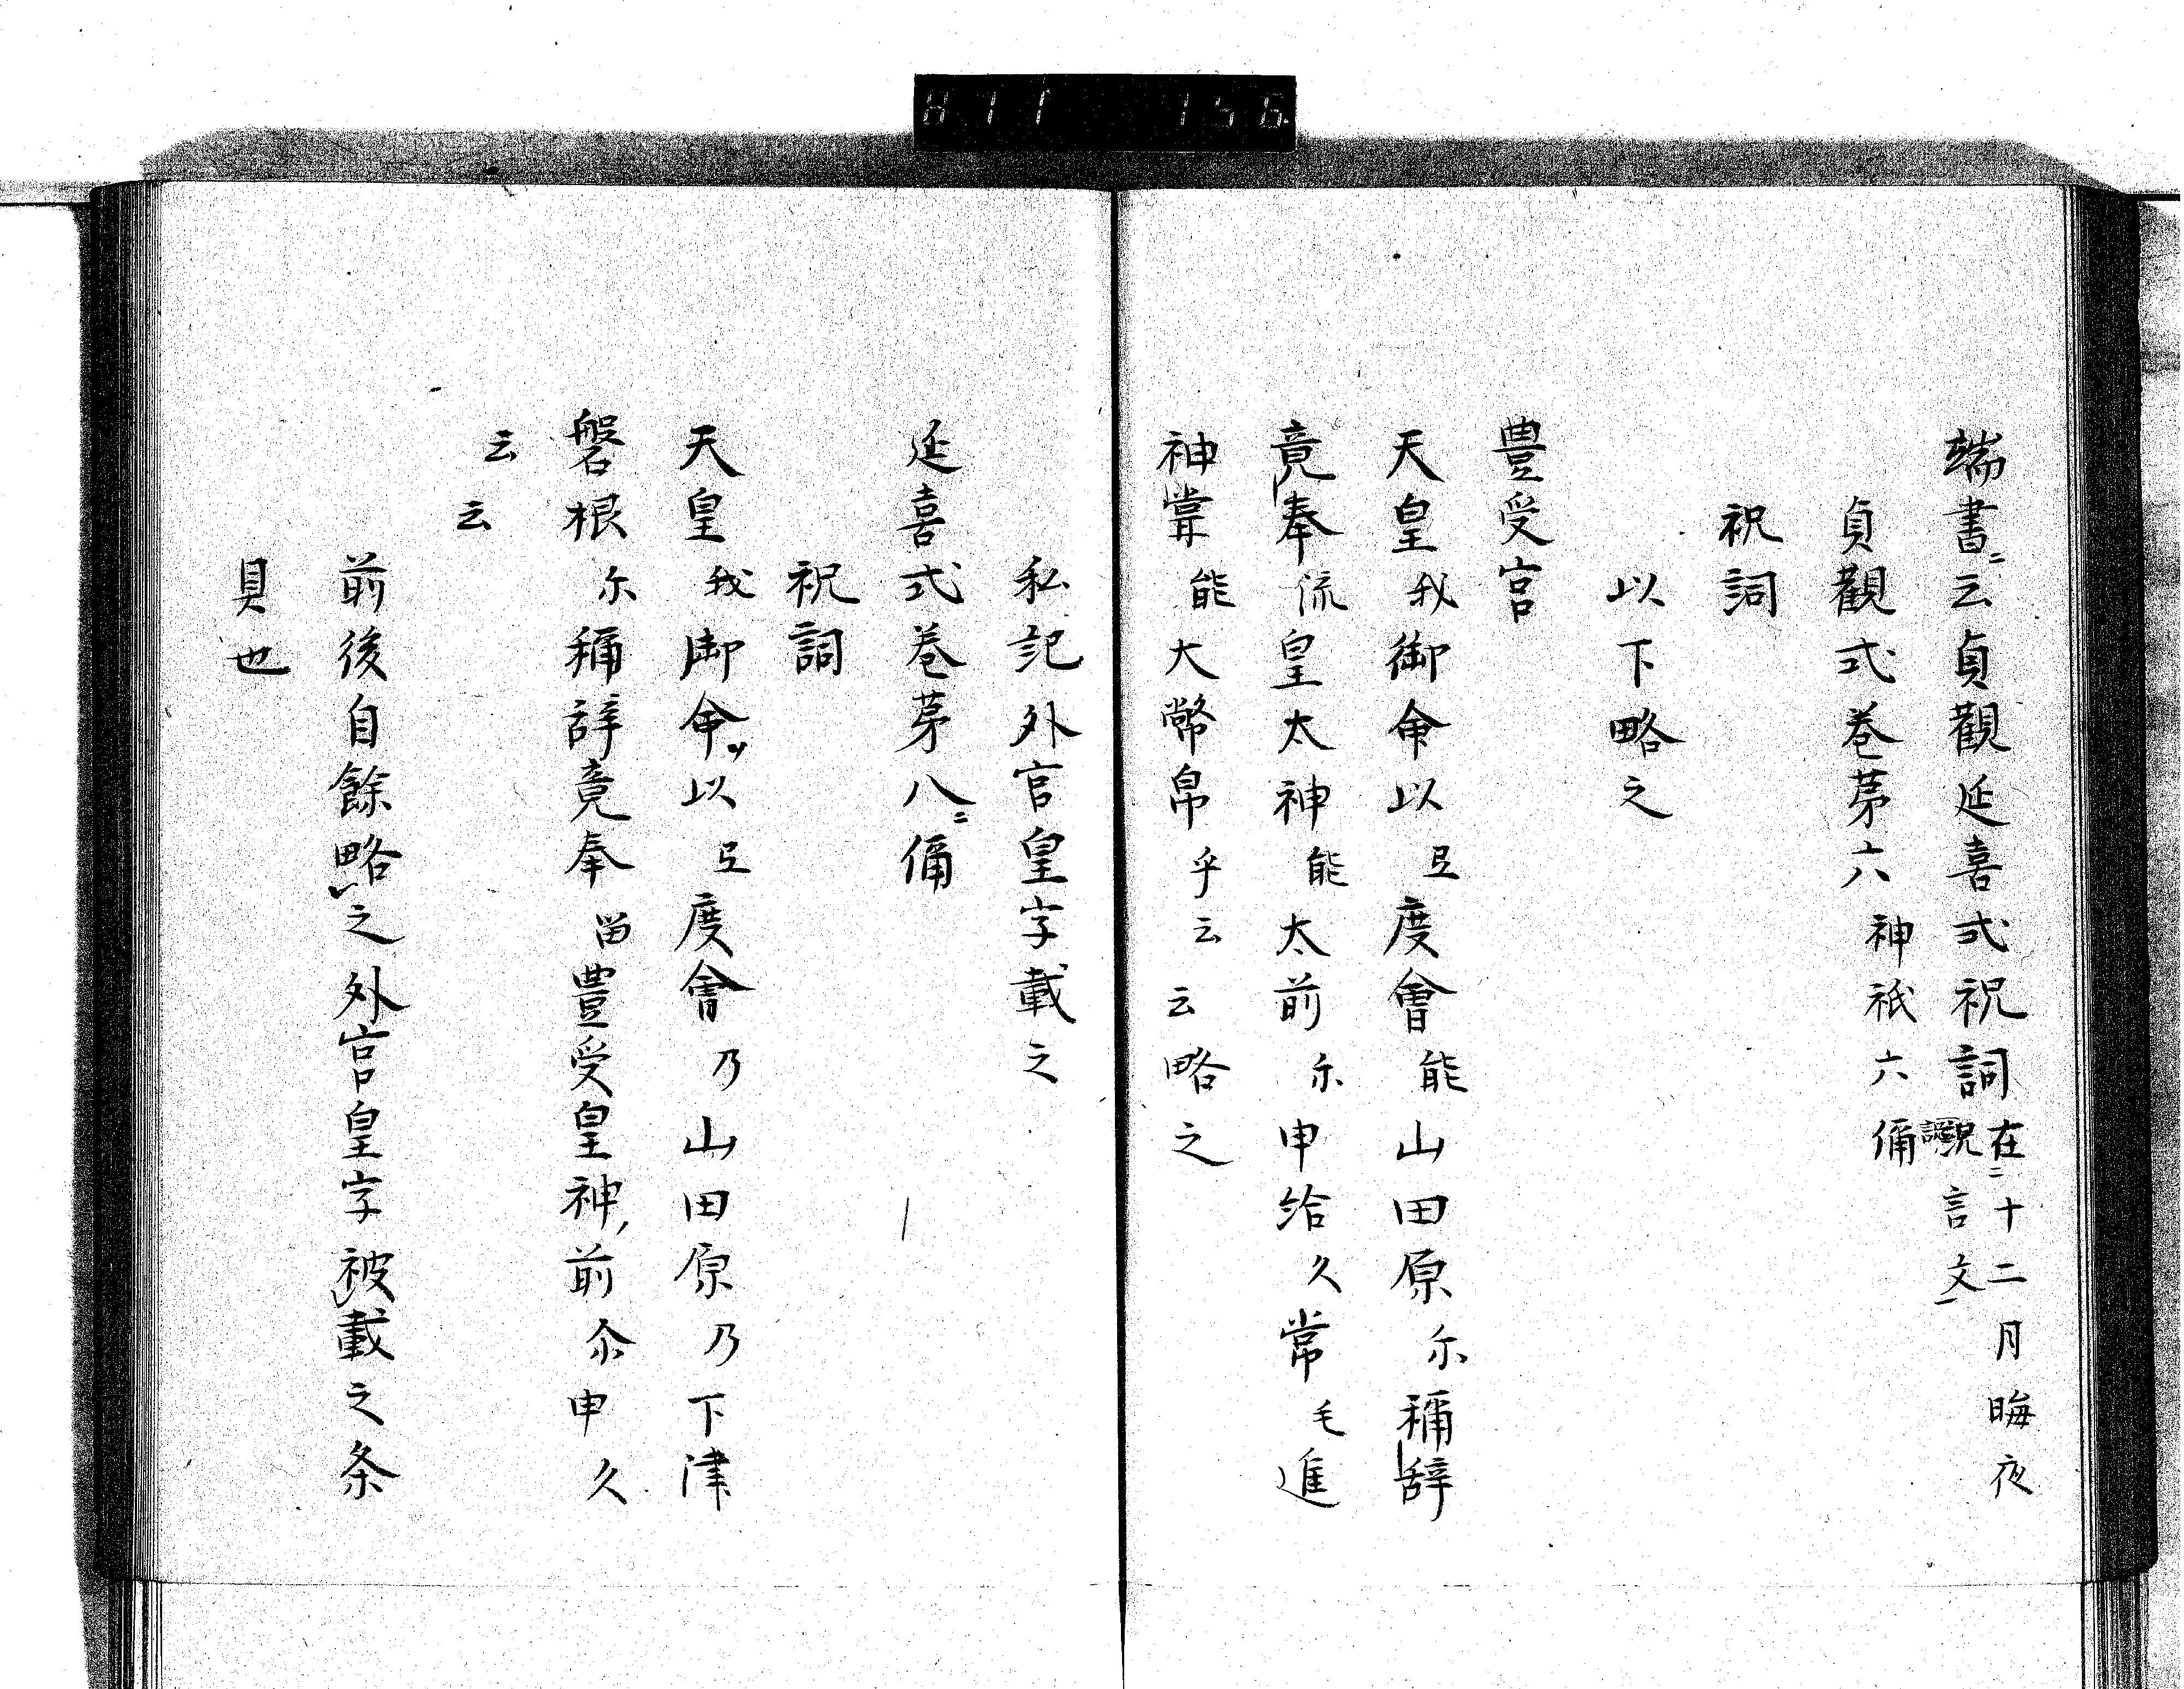 端書ニ云貞觀延喜式祝詞在ニ十二月晦夜
祝言文
貞觀式巻苐六神祇六俻
祝詞
以下略之
豊受宮
天皇我御命以弖度會能山田原尓稱辞
竟奉流皇太神能太前尓申給久常毛進
神甞能大幣帛乎云云略之
私記外宮皇字載之
延喜式巻苐八ニ俻
祝詞
天皇我御命以弖度會乃山田原乃下津
磐根尓稱辞竟奉留豊受皇神前尒申久
云云
前後自餘略之外宮皇字被載之条
貝也